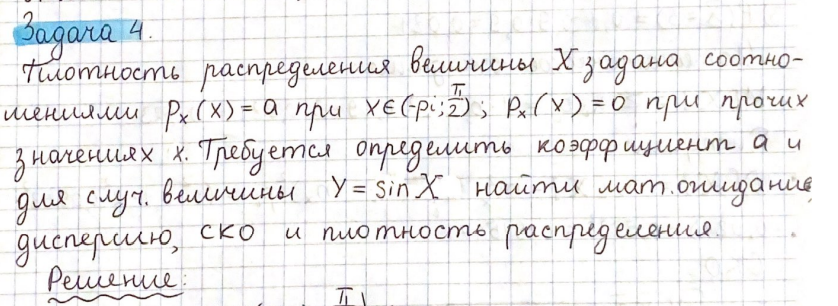 Задача 4.
Плотность распределения величины X задана соотно-
шениями pₓ(x) = a при x∈(-pi; π/2); pₓ(x) = 0 при прочих
значениях x. Требуется определить коэффициент a и
для случ. величины Y = sin X найти мат. ожидание,
дисперсию, СКО и плотность распределения.
Решение: